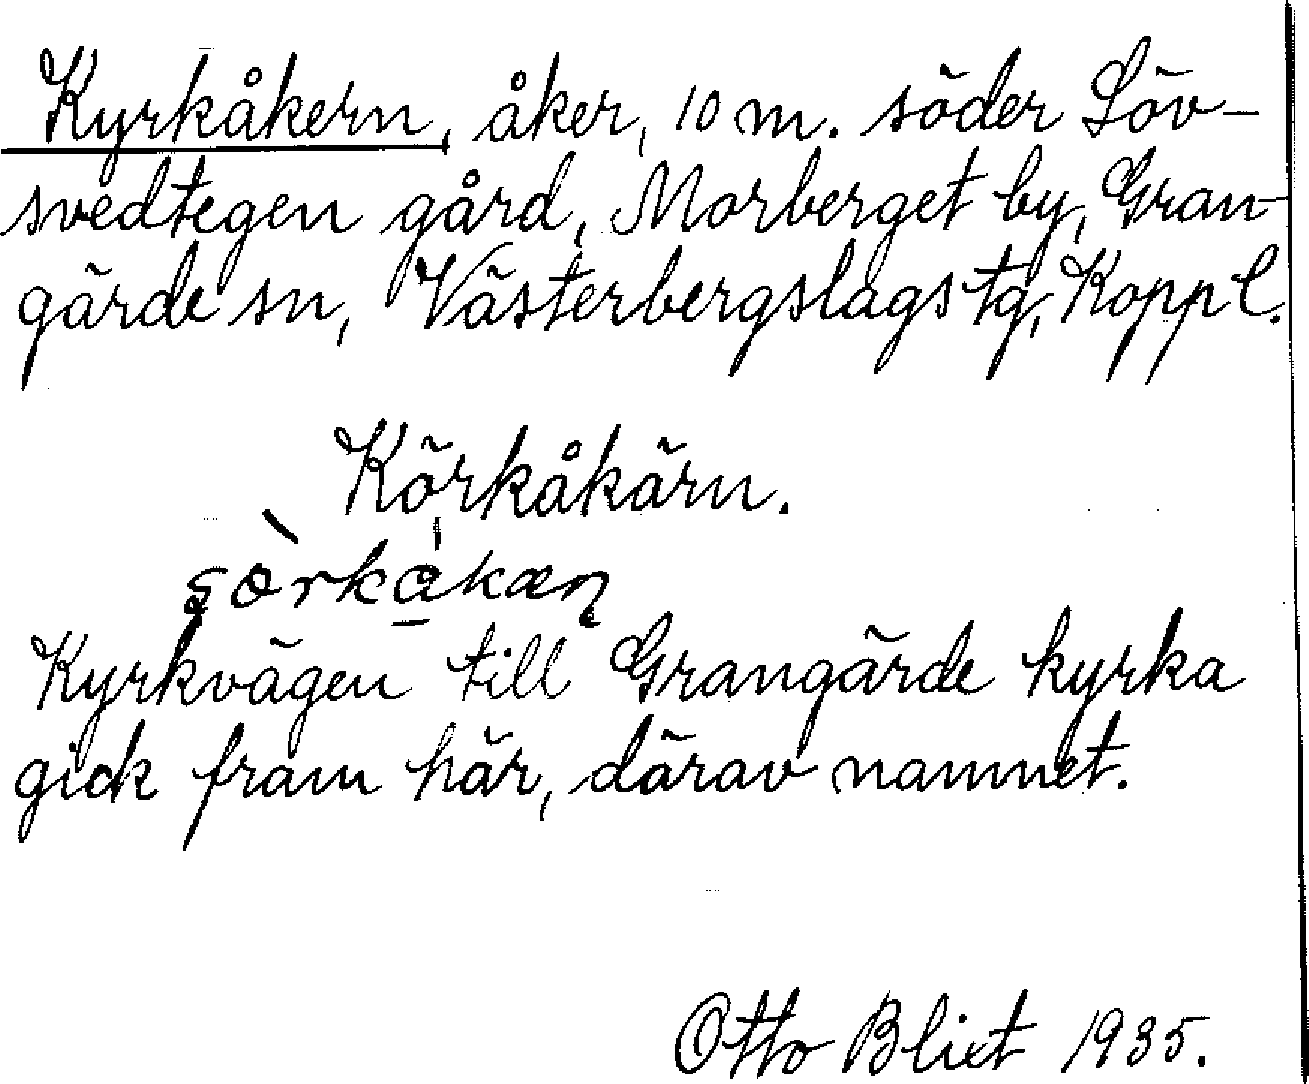 Kyrkåkern, åker, 10 m. söder Löv-
svedtegen gård, Morberget by, Gran-
gärde sn, Västerbergslags tg, Kopp l.
Körkåkärn.
Kyrkvägen till Grangärde kyrka
gick fram här, därav namnet.
Otto Blixt 1935.